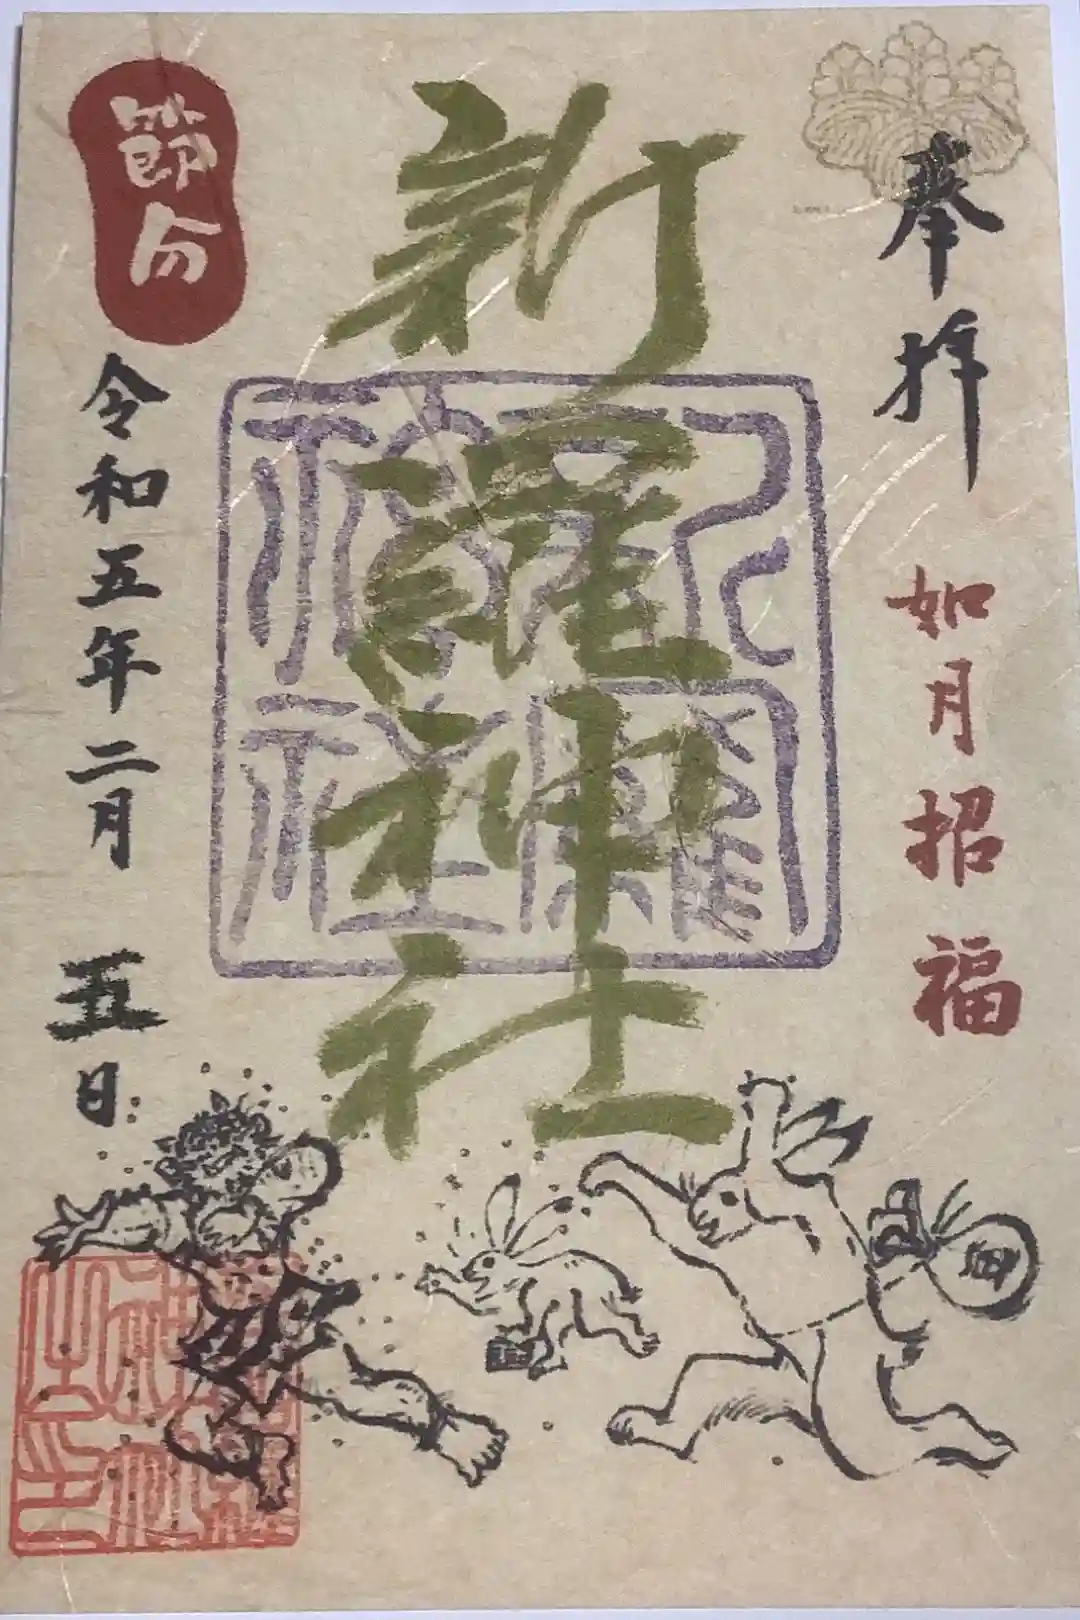 奉拝
如月招福
新羅神社
節分
令和五年二月 五日